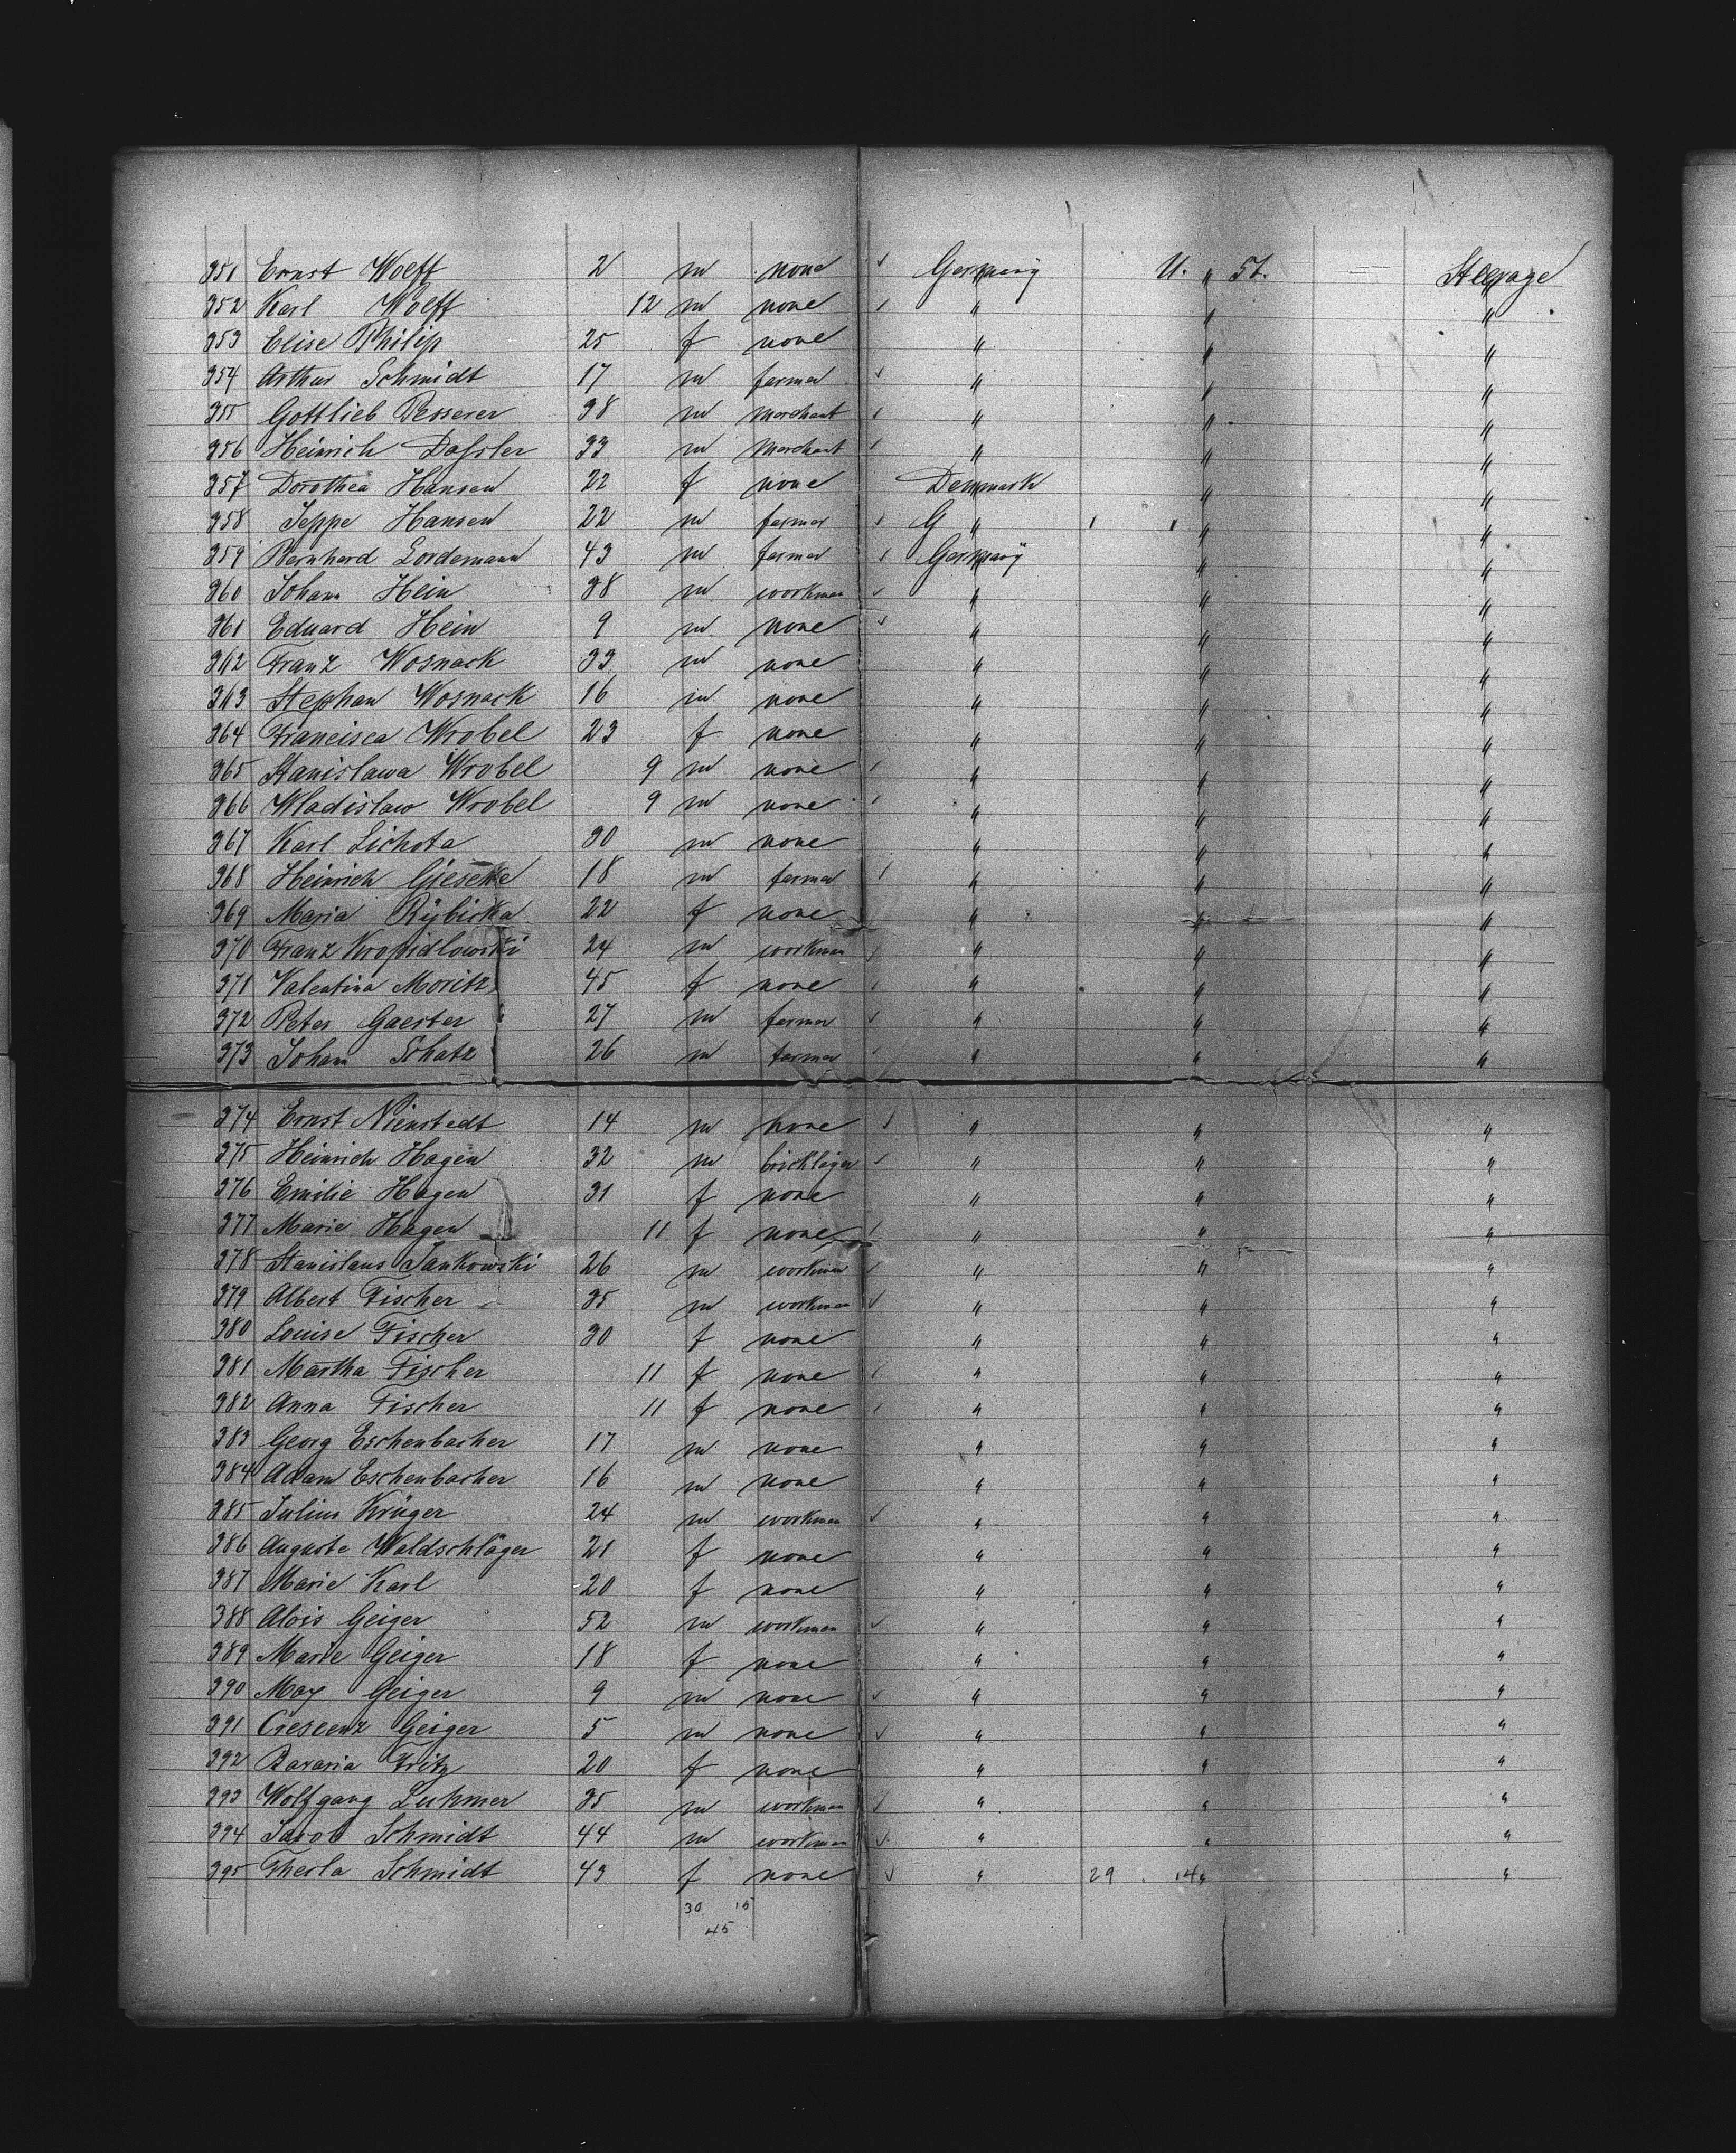 351 Ernst Wolff 2 m none ✓ Germany U. " St. Steerage
352 Karl Wolff 12 m none ✓ " " "
353 Elise Philip 25 f none " " "
354 Arthur Schmidt 17 m farmer ✓ " " "
355 Gottlieb Besserer 38 m merchant ✓ " " "
356 Heinrich Dassler 33 m merchant ✓ " " "
357 Dorothea Hansen 22 f none Denmark " "
358 Jeppe Hansen 22 m farmer ✓ G " 1 1 " "
359 Bernhard Lordemann 43 m farmer ✓ Germany " "
360 Johann Hein 38 m workman ✓ " " "
361 Eduard Hein 9 m none ✓ " " "
362 Franz Wosnack 33 m none " " "
363 Stephan Wosnack 16 m none " " "
364 Francisca Wrobel 23 f none " " "
365 Stanislawa Wrobel 9 m none ✓ " " "
366 Wladislaw Wrobel 9 m none ✓ " " "
367 Karl Lichota 30 m none " " "
368 Heinrich Gieseke 18 m farmer ✓ " " "
369 Maria Rybicka 22 f none " " "
370 Franz Kropidlowski 24 m workman ✓ " " "
371 Valentina Moritz 45 f none ✓ " " "
372 Peter Gaerter 27 m farmer ✓ " " "
373 Johann Schatz 26 m farmer ✓ " " "
374 Ernst Nienstedt 14 m none ✓ " " "
375 Heinrich Hagen 32 m bricklayer ✓ " " "
376 Emilie Hagen 31 f none " " "
377 Marie Hagen 11 f none ✓ " " "
378 Stanislaus Jankowski 26 m workman ✓ " " "
379 Albert Fischer 35 m workman ✓ " " "
380 Louise Fischer 30 f none " " "
381 Martha Fischer 11 f none ✓ " " "
382 Anna Fischer 11 f none ✓ " " "
383 Georg Eschenbacher 17 m none " " "
384 Adam Eschenbacher 16 m none " " "
385 Julius Krüger 24 m workman ✓ " " "
386 Auguste Waldschläger 21 f none " " "
387 Marie Karl 20 f none " " "
388 Alois Geiger 52 m workman ✓ " " "
389 Marie Geiger 18 f none " " "
390 Max Geiger 9 m none ✓ " " "
391 Crescenz Geiger 5 m none ✓ " " "
392 Bavaria Fritz 20 f none " " "
393 Wolfgang Luhmer 35 m workman ✓ " " "
394 Jacob Schmidt 44 m workman ✓ " " "
395 Therla Schmidt 43 f none ✓ " 29 14 " "
30 15
45